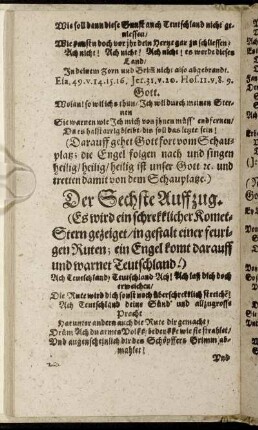 Wie soll dann diese Gunst auch Teutschland nicht geniessen?
Wie hanst'n doch vor ihr dein Hertz gar zu schliessen?
Ach nicht! Ach nicht! Ach nicht; es werde diesen
Land/
In deinem Zorn und Grim nicht also abgebrandt.
Esa, 49. v. 14. 15. 16. Jer. 31. v. 20. Hos. 11. v. 8. 9.
Gott.
Wolan! so wil ichs thun/ Ich wil durch meinen Sternen
Sie warnen wie Ich mich von ihnen müss' entfernen/
Da es halsstarrig bleibt: diß soll das letzte sein!
(Darauff gehet Gott fort vom Schauplatz;
die Engel folgen nach und singen
heilig/heilig/heilig ist unser Gott ꝛc. und
tretten damit von dem Schauplatze.)
Der Sechste Auffzug.
(Es wird ein schrekklicher Komet-
Stern gezeiget/in gestalt einer feuri-
gen Ruten; ein Engel komt darauff
und warnet Teutschland!)
Ach Teutschland/ Teutschland Ach! Ach laß dich doch
erweichen/
Die Rute wird dich sonst noch überschrecklich streichē;
Ach Teutschland deine Sünd' und allzugrosse
Pracht
Hat unter andern auch die Rute dir gemacht;
Drüm Ach du armes Volk! bedenkke wie sie strahlet/
Und augenscheinlich dir den Schöpffers Grimm ab-
mahlet!
Und